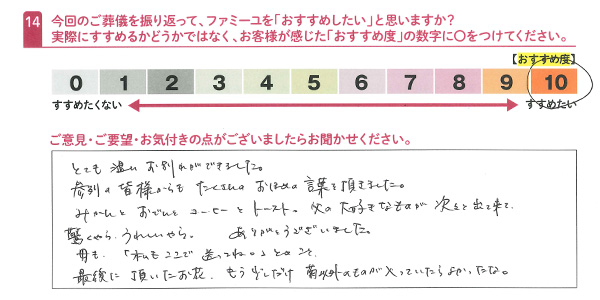 14 今回のご葬儀を振り返って、ファミーユを「おすすめしたい」と思いますか?
実際にすすめるかどうかではなく、お客様が感じた「おすすめ度」の数字に〇をつけてください。
【おすすめ度】
0 1 2 3 4 5 6 7 8 9 10
すすめたくない すすめたい
ご意見・ご要望・お気付きの点がございましたらお聞かせください。
とても温かいお別れができました。
参列の皆様からもたくさんのおほめの言葉を頂きました。
みかんとおでんとコーヒーとトースト。父の大好きなものが次々と出て来て、
驚くやら、うれしいやら。 ありがとうございました。
母も、「私もここで送ってね。」とのこと。
最後に頂いたお花、もう少しだけ菊以外のものが入っていたらよかったな。